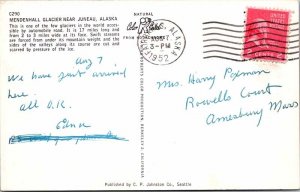 C290
MENDENHALL GLACIER NEAR JUNEAU, ALASKA
This is one of the few glaciers in the world acces-
sible by automobile road. It is 17 miles long and
from 2 to 3 miles wide at its face. Such streams
are forced from under its mountain weight and the
sides of the valleys along its course are cut and
scarred by pressure of the ice.
NATURAL
Color
FROM KODACHROME
ALASKA
3-PM
1952
Aug 7
We have just arrived
here
all O.K.
Edna
Mrs. Harry
Rowells Court
Amesbury Mass
Published by C. P. Johnston Co., Seattle